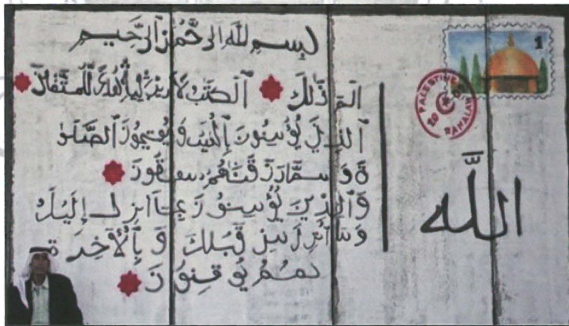 بسم الله الرحمن الرحيم
الم ذلك الكتب لا ريب فيه هدى للمتقين
الذين يؤمنون بالغيب ويقيمون الصلو
ة ومما رزقناهم ينفقون
والذين يؤمنون بما انزل إليك
وما انزل من قبلك وبالآخرة
هم يوقنون
1
PALESTINE
RAMALLAH
اللّه